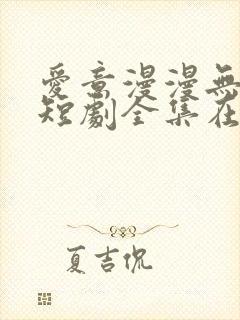 愛意漫漫無
短劇全集在
夏吉侃